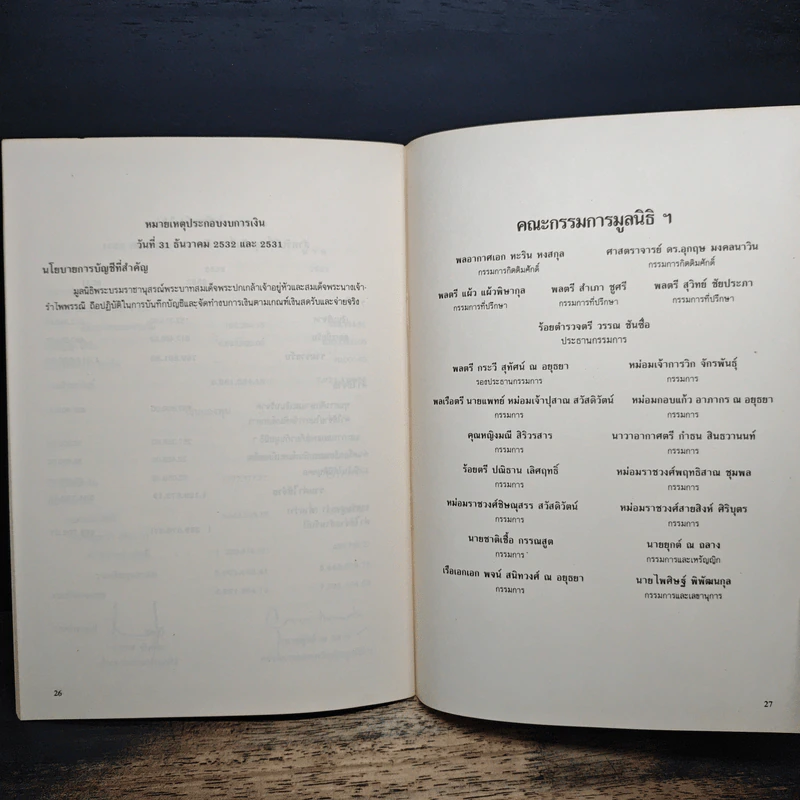 หมายเหตุประกอบงบการเงิน
วันที่ 31 ธันวาคม 2532 และ 2531
นโยบายการบัญชีที่สำคัญ
มูลนิธิพระบรมราชานุสรณ์พระบาทสมเด็จพระปกเกล้าเจ้าอยู่หัวและสมเด็จพระนางเจ้า-
รำไพพรรณี ถือปฏิบัติในการบันทึกบัญชีและจัดทำงบการเงินตามเกณฑ์เงินสดรับและจ่ายจริง
26
คณะกรรมการมูลนิธิ ฯ
พลอากาศเอก หะริน หงสกุล ศาสตราจารย์ ดร.อุกฤษ มงคลนาวิน
กรรมการกิตติมศักดิ์ กรรมการกิตติมศักดิ์
พลตรี แผ้ว แผ้วพิษากุล พลตรี สำเภา ชูศรี พลตรี สุวิทย์ ชัยประภา
กรรมการที่ปรึกษา กรรมการที่ปรึกษา กรรมการที่ปรึกษา
ร้อยตำรวจตรี วรรณ ชันซื่อ
ประธานกรรมการ
พลตรี กระวี สุทัศน์ ณ อยุธยา หม่อมเจ้าการวิก จักรพันธุ์
รองประธานกรรมการ กรรมการ
พลเรือตรี นายแพทย์ หม่อมเจ้าปุสาณ สวัสดิวัตน์ หม่อมกอบแก้ว อาภากร ณ อยุธยา
กรรมการ กรรมการ
คุณหญิงมณี สิริวรสาร นาวาอากาศตรี กำธน สินธวานนท์
กรรมการ กรรมการ
ร้อยตรี ปณิธาน เลิศฤทธิ์ หม่อมราชวงศ์พฤทธิสาณ ชุมพล
กรรมการ กรรมการ
หม่อมราชวงศ์ชิษณุสรร สวัสดิวัตน์ หม่อมราชวงศ์สายสิงห์ ศิริบุตร
กรรมการ กรรมการ
นายชาติเชื้อ กรรณสูต นายยุกต์ ณ ถลาง
กรรมการ กรรมการและเหรัญญิก
เรือเอกเอก พจน์ สนิทวงศ์ ณ อยุธยา นายไพศิษฐ์ พิพัฒนกุล
กรรมการ กรรมการและเลขานุการ
27